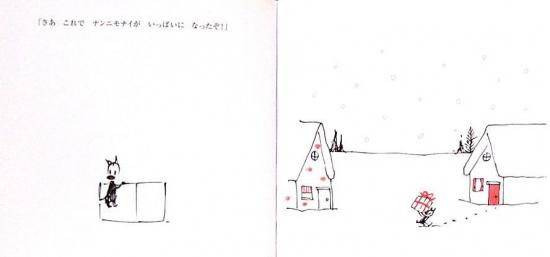 「さあ これで ナンニモナイが いっぱいに なったぞ！」